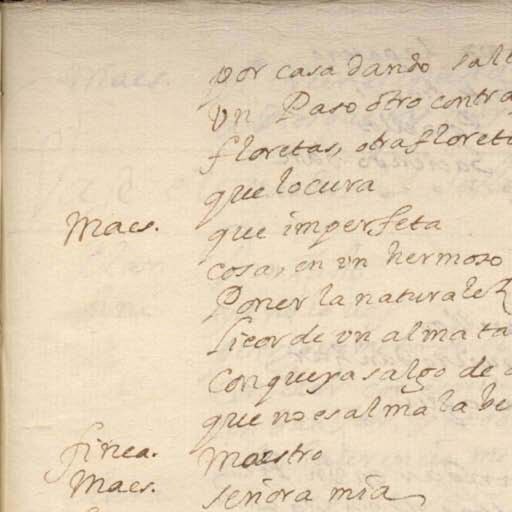 por casa dando salt
Vn Paso otro contra
floretas, otra floret
que locura
Maes. que imperfeta
cosa, en vn hermoso
Poner la naturalez
licor de vn alma ta
Con que ya salgo de
que no es alma la be
finea. Maestro
Maes. señora mia